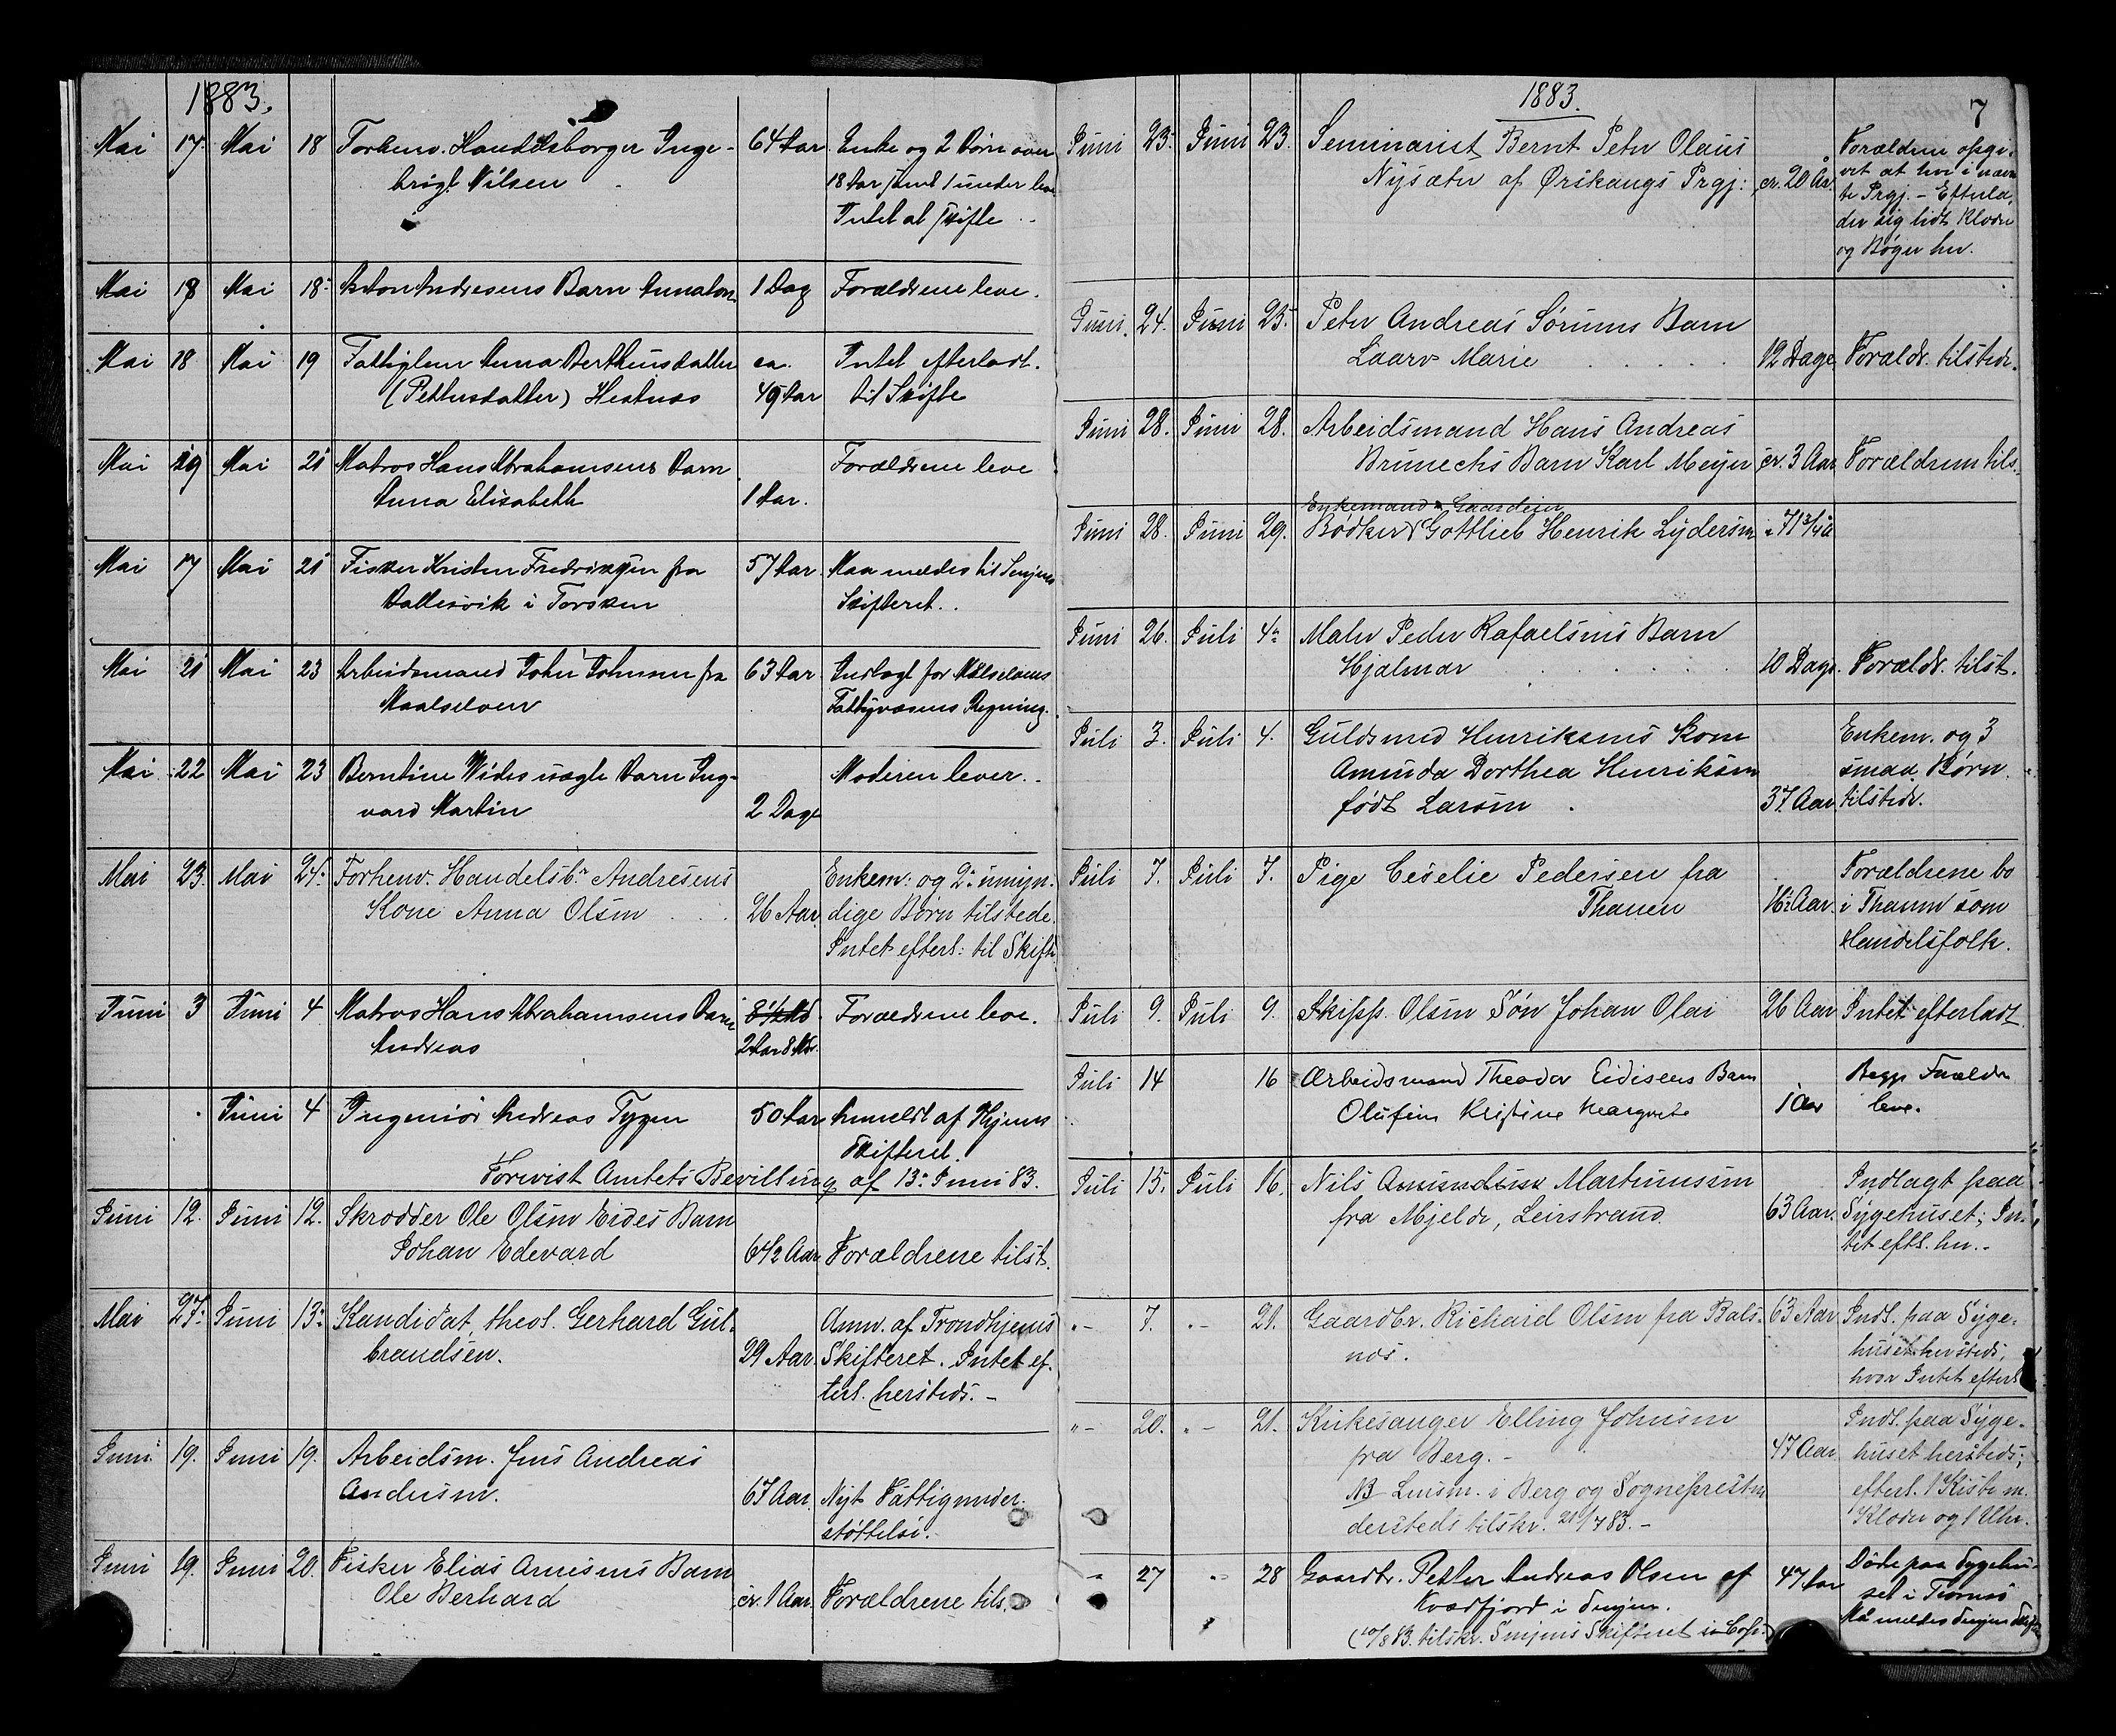 1883.
Mai 17. Mai 18 Forhenv. Handelsborger Inge- 64 Aar Enke og 2 Børn over
brigt Nilsen 18 Aar samt 1 under leve
Intet at skifte
Mai 18 Mai 18 Anton Andresens Barn 1 Dag Forældrene leve.
Mai 18 Mai 19 Fattiglem Anna Bertheusdatter ca. Intet efterladt
(Pettersdatter) Hestnæs 49 Aar til Skifte
Mai 19 Mai 21 Matros Hans Abrahamsens Barn Forældrene leve
Anna Elisabeth 1 Aar.
Mai 17 Mai 21 Fisker Kristen Fredriksen fra 57 Aar Maa meldes til Senjens
Ballesvik i Torsken Skifteret.
Mai 21 Mai 23 Arbeidsmand John Johnsen fra 63 Aar Indlagt for Målselvens
Maalselven Fattigvæsens Regning.
Mai 22 Mai 23 Berntine Wides uægte Barn Ing- Moderen lever.
vard Martin 2 Dage
Mai 23. Mai 24. Forhenv. Handelsb. Andresens Enkem: og 2 umyn-
Kone Anna Olsen 26 Aar. dige Børn tilstede.
Intet efterl: til Skifte
Juni 3 Juni 4 Matros Hans Abrahamsens Barn Forældrene leve.
Andreas 2 Aar 8 Mdr.
Juni 4 Ingeniør Andreas Tygen 50 Aar Anmeldt af Hjems
Skifteret.
Forevist Amtets Bevilling af 13. Juni 83.
Juni 12. Juni 12. Skrædder Ole Olsen Eides Barn
Johan Edevard 6 1/2 Aar Forældrene tilst.
Mai 27. Juni 13. Kandidat theol. Gerhard Gul- Anm. af Trondhjems
brandsen. 29 Aar. Skifteret. Intet ef-
terl. hersteds.-
Juni 19. Juni 19. Arbeidsm. Jens Andreas
Andersen. 67 Aar. Nyt Fattigunder-
støttelse.
Juni 19. Juni 20. Fisker Elias Arnesens Barn
Ole Berhard cr. 1 Aar. Forældrene tils.
1883. 7
Juni 23. Juni 23. Seminarist Bernt Peter Olaus Forældrene opgi-
Nysæter af Ørskougs Prgj: cr. 20 Ar. vet at bo i nævn
te Prgj. - Efterla-
der sig lidt Klæder
og Bøger her.
Juni 24. Juni 25. Peter Andreas Sørums Barn
Laara Marie 12 Dage Forældr. tilstede.
Juni 28. Juni 28. Arbeidsmand Hans Andreas
Brunechs Barn Karl Meyer cr. 3 Aar Forældrene tils.
Enkemand & Gaardeier
Juni 28. Juni 29. Bødker Gottlieb Henrik Lydersen 71
Juni 26. Juli 4. Maler Peder Rafaelsens Barn
Hjalmar 10 Dage. Forældr. tilst.
Juli 3. Juli 4. Guldsmed Henriksens Kone Enkem. og 3
Amunda Dorthea Henriksen smaa Børn
født Larsen 37 Aar. tilstede.
Juli 7. Juli 7. Pige Ceselie Pedersen fra Forældrene bo
Thanen 16 Aar. i Thanen som
Handelsfolk.
Juli 9. Juli 9. Skipp. Olsens Søn Johan Olai 26 Aar Intet efterladt
Juli 14 16 Arbeidsmand Theodor Eidisens Barn Begge Forældre
Olufine Kristine Margrete 1 Aar leve.
Juli 15. Juli 16. Nils Amundsen Martinussen Indlagt paa
fra Mjelde, Leirstrand. 63 Aar. Sygehuset; In-
tet eftl. her.-
"- 7. "- 21. Gaardbr. Richard Olsen fra Bals- 63 Aar Indl. paa Syge-
næs. huset hersteds,
hvor Intet efterl.
"- 20. "- 21. Kirkesanger Elling Johnsen Indl. paa Syge-
fra Berg.- 47 Aar. huset hersteds;
NB Lensm. i Berg og Sognepresten efterl. 1 Kiste m.
dersteds tilskr. 21/7 83.- Klæder og 1 Uhr.
"- 27 "- 28 Gaardbr. Petter Andreas Olsen af 47 Aar Døde paa Sygehu-
Kvædfjord i Senjen. set i Tromsø
(10/8 83. tilskr. Senjens Skifteret Må meldes Senjens Skifter